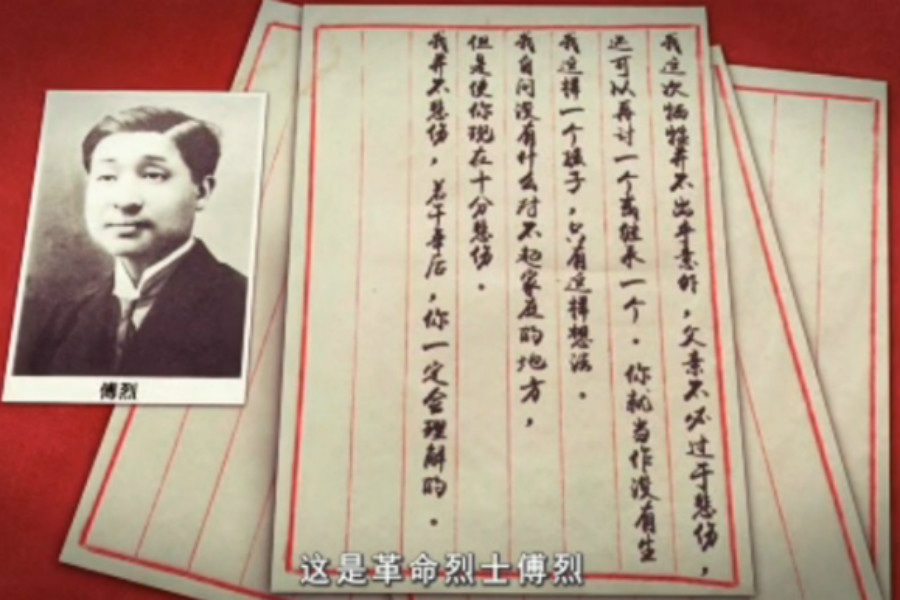 我这次牺牲并不出乎意外，父亲不必过于悲伤，
还可以再讨一个继承一个。你就当作没有生
我这样一个孩子，只有这样想法。
我自问没有什么对不起家庭的地方，
但是使你现在十分悲伤。
我并不悲伤，若干年后，你一定会理解的。
傅烈
这是革命烈士傅烈